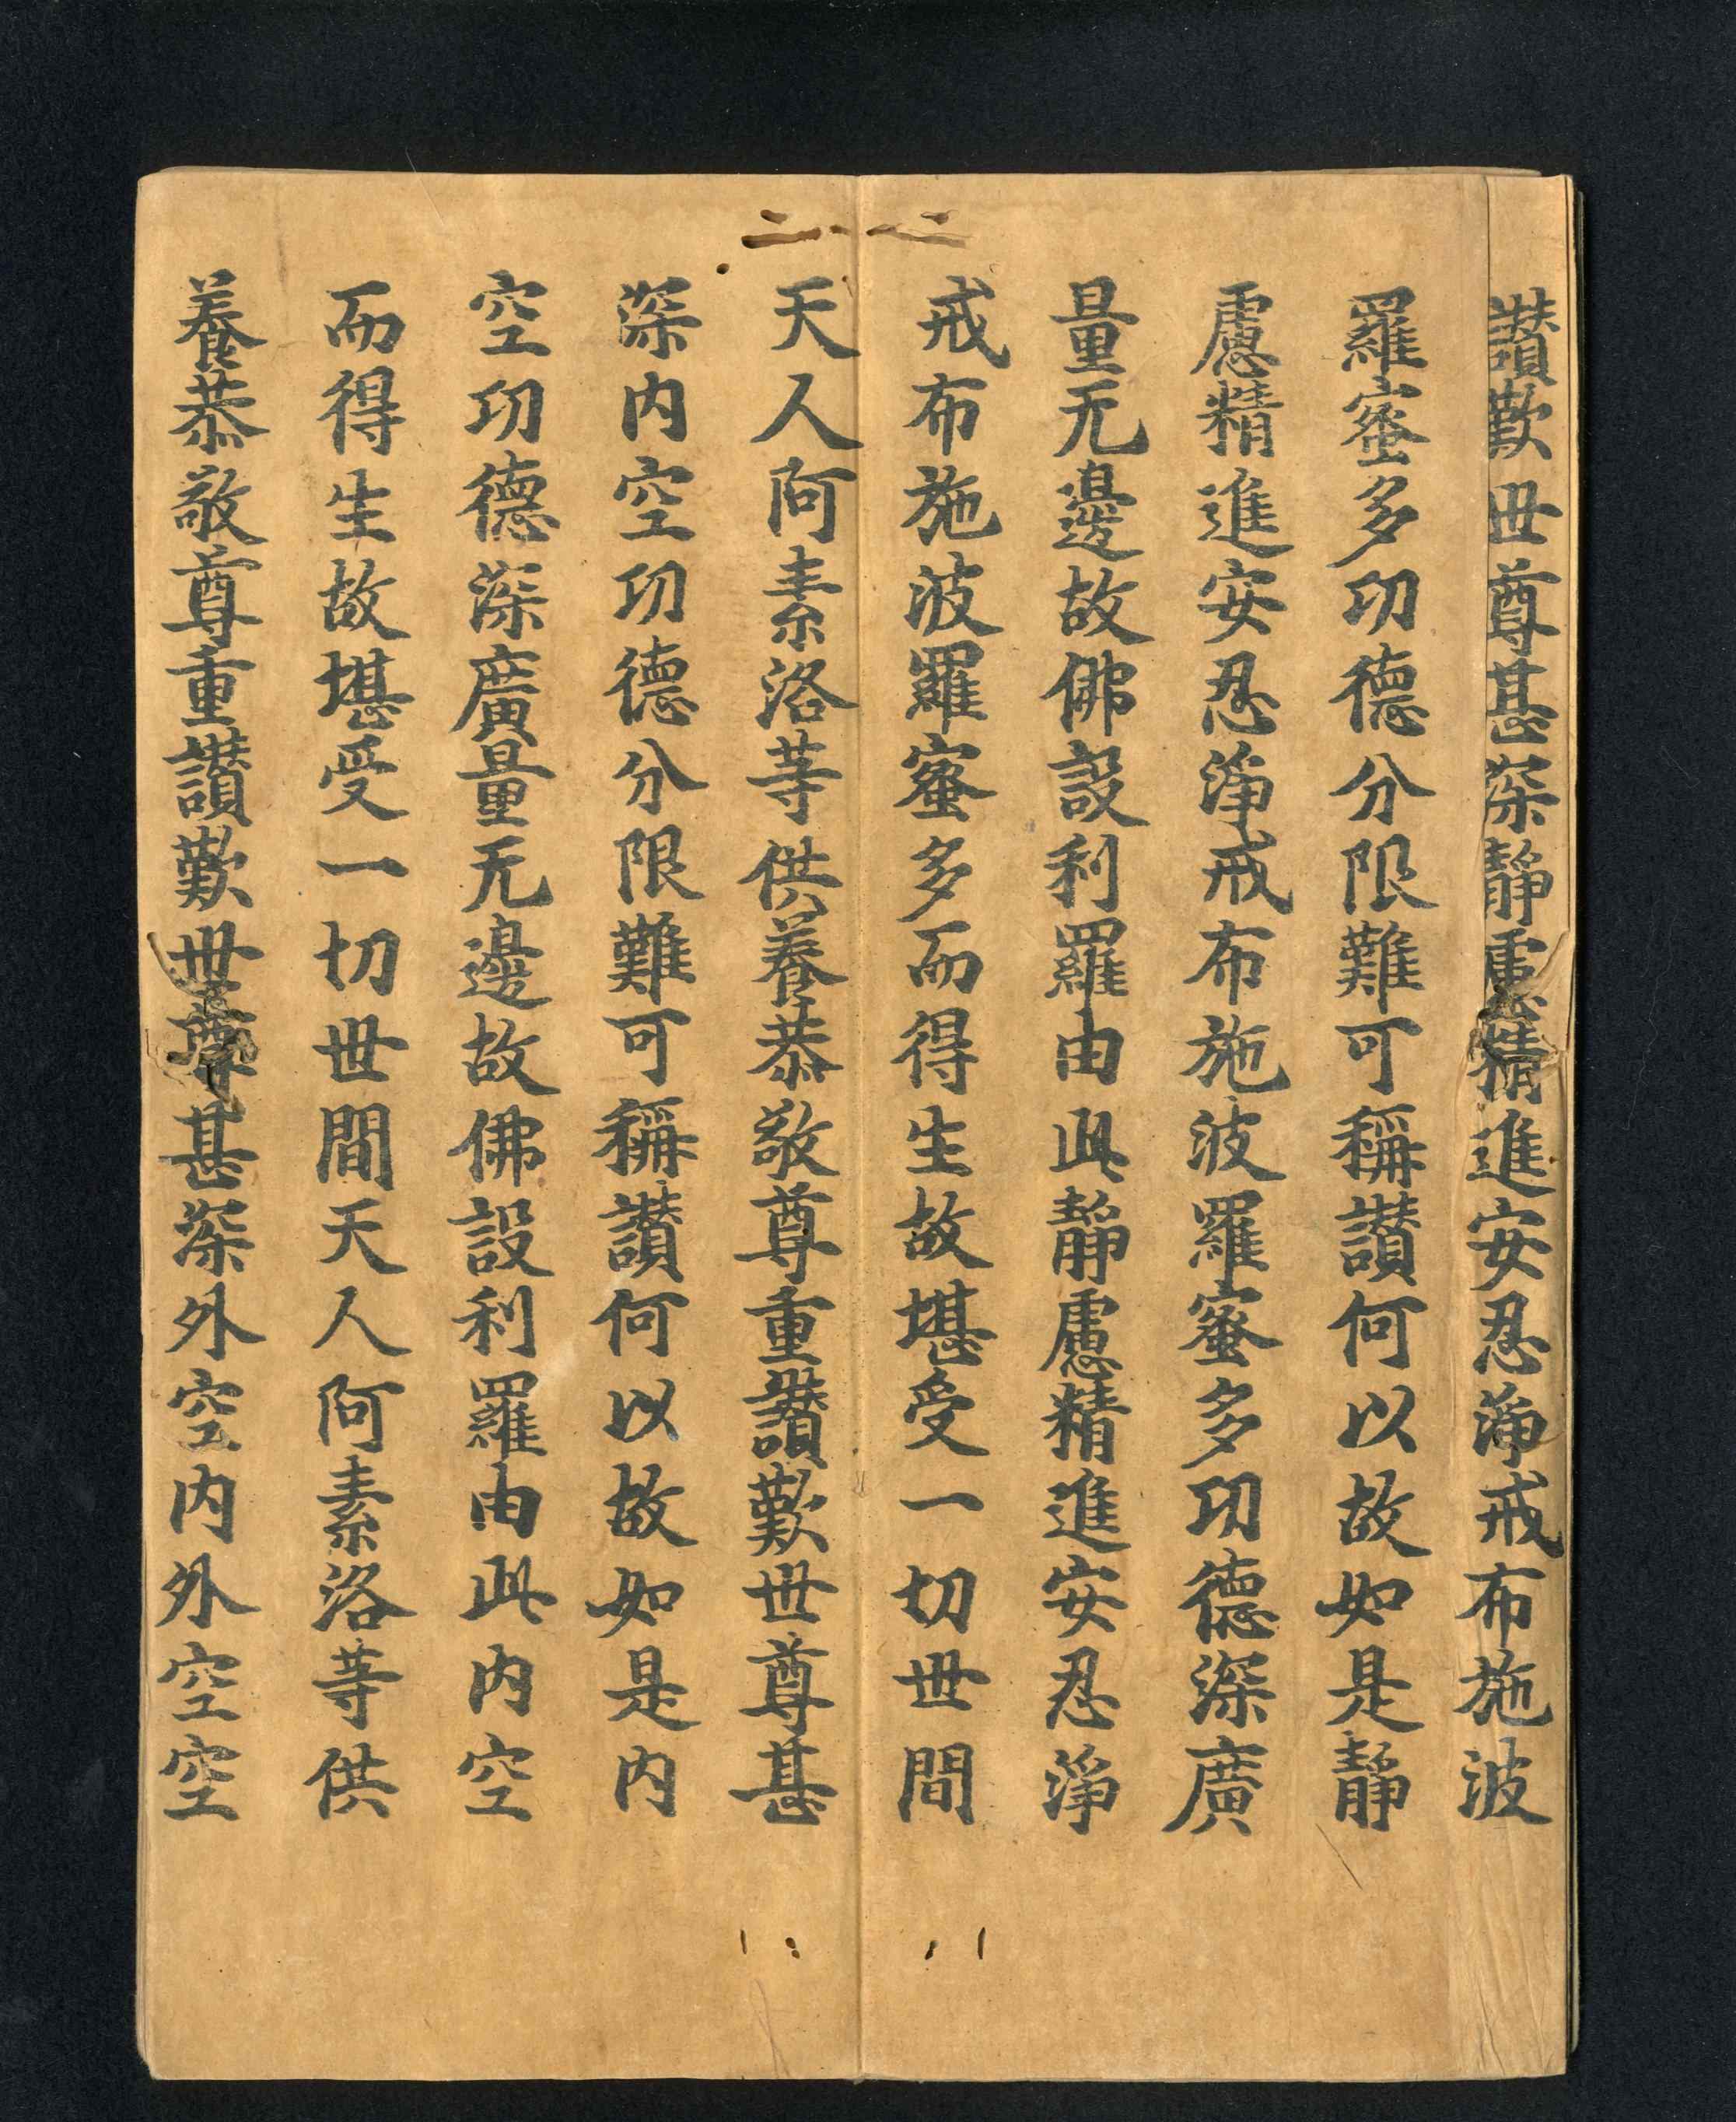 讃歎世尊甚深靜慮精進安忍淨戒布施波
羅蜜多功德分限難可稱讃何以故如是靜
慮精進安忍淨戒布施波羅蜜多功德深廣
量无邊故佛設利羅由此靜慮精進安忍淨
戒布施波羅蜜多而得生故堪受一切世間
天人阿素洛等供養恭敬尊重讃歎世尊甚
深内空功德分限難可稱讃何以故如是内
空功德深廣量无邊故佛設利羅由此内空
而得生故堪受一切世間天人阿素洛等供
養恭敬尊重讃歎世尊甚深外空内外空空